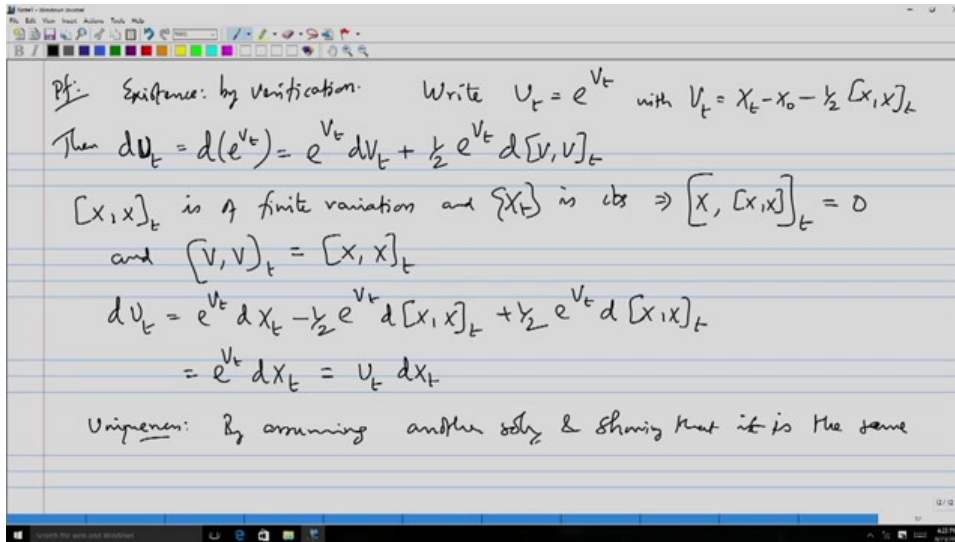 Note1 - Windows Journal
File Edit View Insert Actions Tools Help
B I
Pf: Existence: by verification. Write U_t = e^{V_t} with V_t = X_t - X_0 - ½ [X,X]_t
Then dU_t = d(e^{V_t}) = e^{V_t} dV_t + ½ e^{V_t} d[V,V]_t
[X,X]_t is of finite variation and {X_t} is cts ⇒ [X, [X,X]]_t = 0
and [V,V]_t = [X,X]_t
dU_t = e^{V_t} dX_t - ½ e^{V_t} d[X,X]_t + ½ e^{V_t} d[X,X]_t
= e^{V_t} dX_t = U_t dX_t
Uniqueness: By assuming another soln & showing that it is the same
12/12
Search the web and Windows